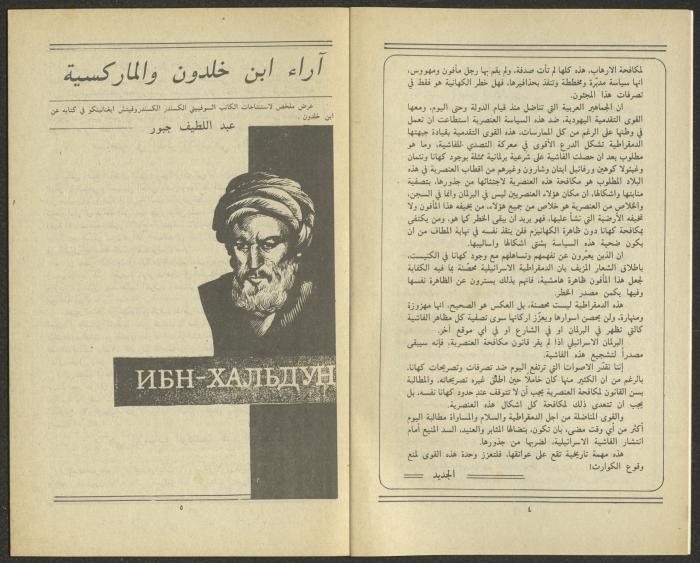 لمكافحة الارهاب، هذه كلها لم تأت صدفة، ولم يقم بها رجل مأفون ومهووس،
انها سياسة مدبّرة ومخططة وتنفذ بحذافيرها، فهل خطر الكهانية هو فقط في
تصرفات هذا المجنون.
ان الجماهير العربية التي تناضل منذ قيام الدولة وحتى اليوم، ومعها
القوى التقدمية اليهودية، ضد هذه السياسة العنصرية استطاعت ان تعمل
في وطنها على الرغم من كل الممارسات، هذه القوى التقدمية بقيادة جبهتها
الدمقراطية تشكل الدرع الأقوى في معركة التصدي للفاشية، وما هو
مطلوب بعد ان حصلت الفاشية على شرعية برلمانية ممثلة بوجود كهانا ونتمان
وغيئولا كوهين ورفائيل ايتان وشارون وغيرهم من اقطاب العنصرية في هذه
البلاد المطلوب هو مكافحة هذه العنصرية لاجتثاثها من جذورها، بتصفية
منابتها واشكالها، ان مكان هؤلاء العنصريين ليس في البرلمان وانما في السجن،
والخلاص من العنصرية هو خلاص من جميع هؤلاء، من يخيفه هذا المأفون ولا
تخيفه الأرضية التي نشأ عليها، فهو يريد ان يبقى الخطر كما هو، ومن يكتفي
بمكافحة كهانا دون ظاهرة الكهانيزم فلن ينقذ نفسه في نهاية المطاف من ان
يكون ضحية هذه السياسة بشتى اشكالها واساليبها.
ان الذين يعبّرون عن تفهمهم وتساهلهم مع وجود كهانا في الكنيست،
باطلاق الشعار المزيف بان الدمقراطية الاسرائيلية محصّنة بما فيه الكفاية
لجعل هذا المأفون ظاهرة هامشية، فانهم بذلك يسترون عن الظاهرة نفسها
وفيها يكمن مصدر الخطر.
هذه الدمقراطية ليست محصنة، بل العكس هو الصحيح، انها مهزوزة
ومنهارة، ولن يحصن اسوارها ويعزّز اركانها سوى تصفية كل مظاهر الفاشية
كالتي تظهر في البرلمان او في الشارع او في اي موقع آخر.
البرلمان الاسرائيلي اذا لم يقر قانون مكافحة العنصرية، فإنه سيبقى
مصدراً لتشجيع هذه الفاشية.
إننا نقدّر الاصوات التي ترتفع اليوم ضد تصرفات وتصريحات كهانا،
بالرغم من ان الكثير منها كان خاملاً حين اطلق غيره تصريحاته، والمطالبة
بسن القانون لمكافحة العنصرية يجب أن لا تتوقف عند حدود كهانا نفسه، بل
يجب ان تتعدى ذلك لمكافحة كل اشكال هذه العنصرية.
والقوى المناضلة من اجل الدمقراطية والسلام والمساواة مطالبة اليوم
أكثر من أي وقت مضى، بان تكون، بنضالها المثابر والعنيد، السد المنيع أمام
انتشار الفاشية الاسرائيلية، لضربها من جذورها.
هذه مهمة تاريخية تقع على عواتقها، فلتعزز وحدة هذه القوى لمنع
وقوع الكوارث!
الجديد
٤
آراء ابن خلدون والماركسية
عرض ملخص لاستنتاجات الكاتب السوفييتي الكسندر الكسندروفيتش ايغناتينكو في كتابه عن
ابن خلدون.
عبد اللطيف جبور
ИБН-ХАЛЬДУН
٥